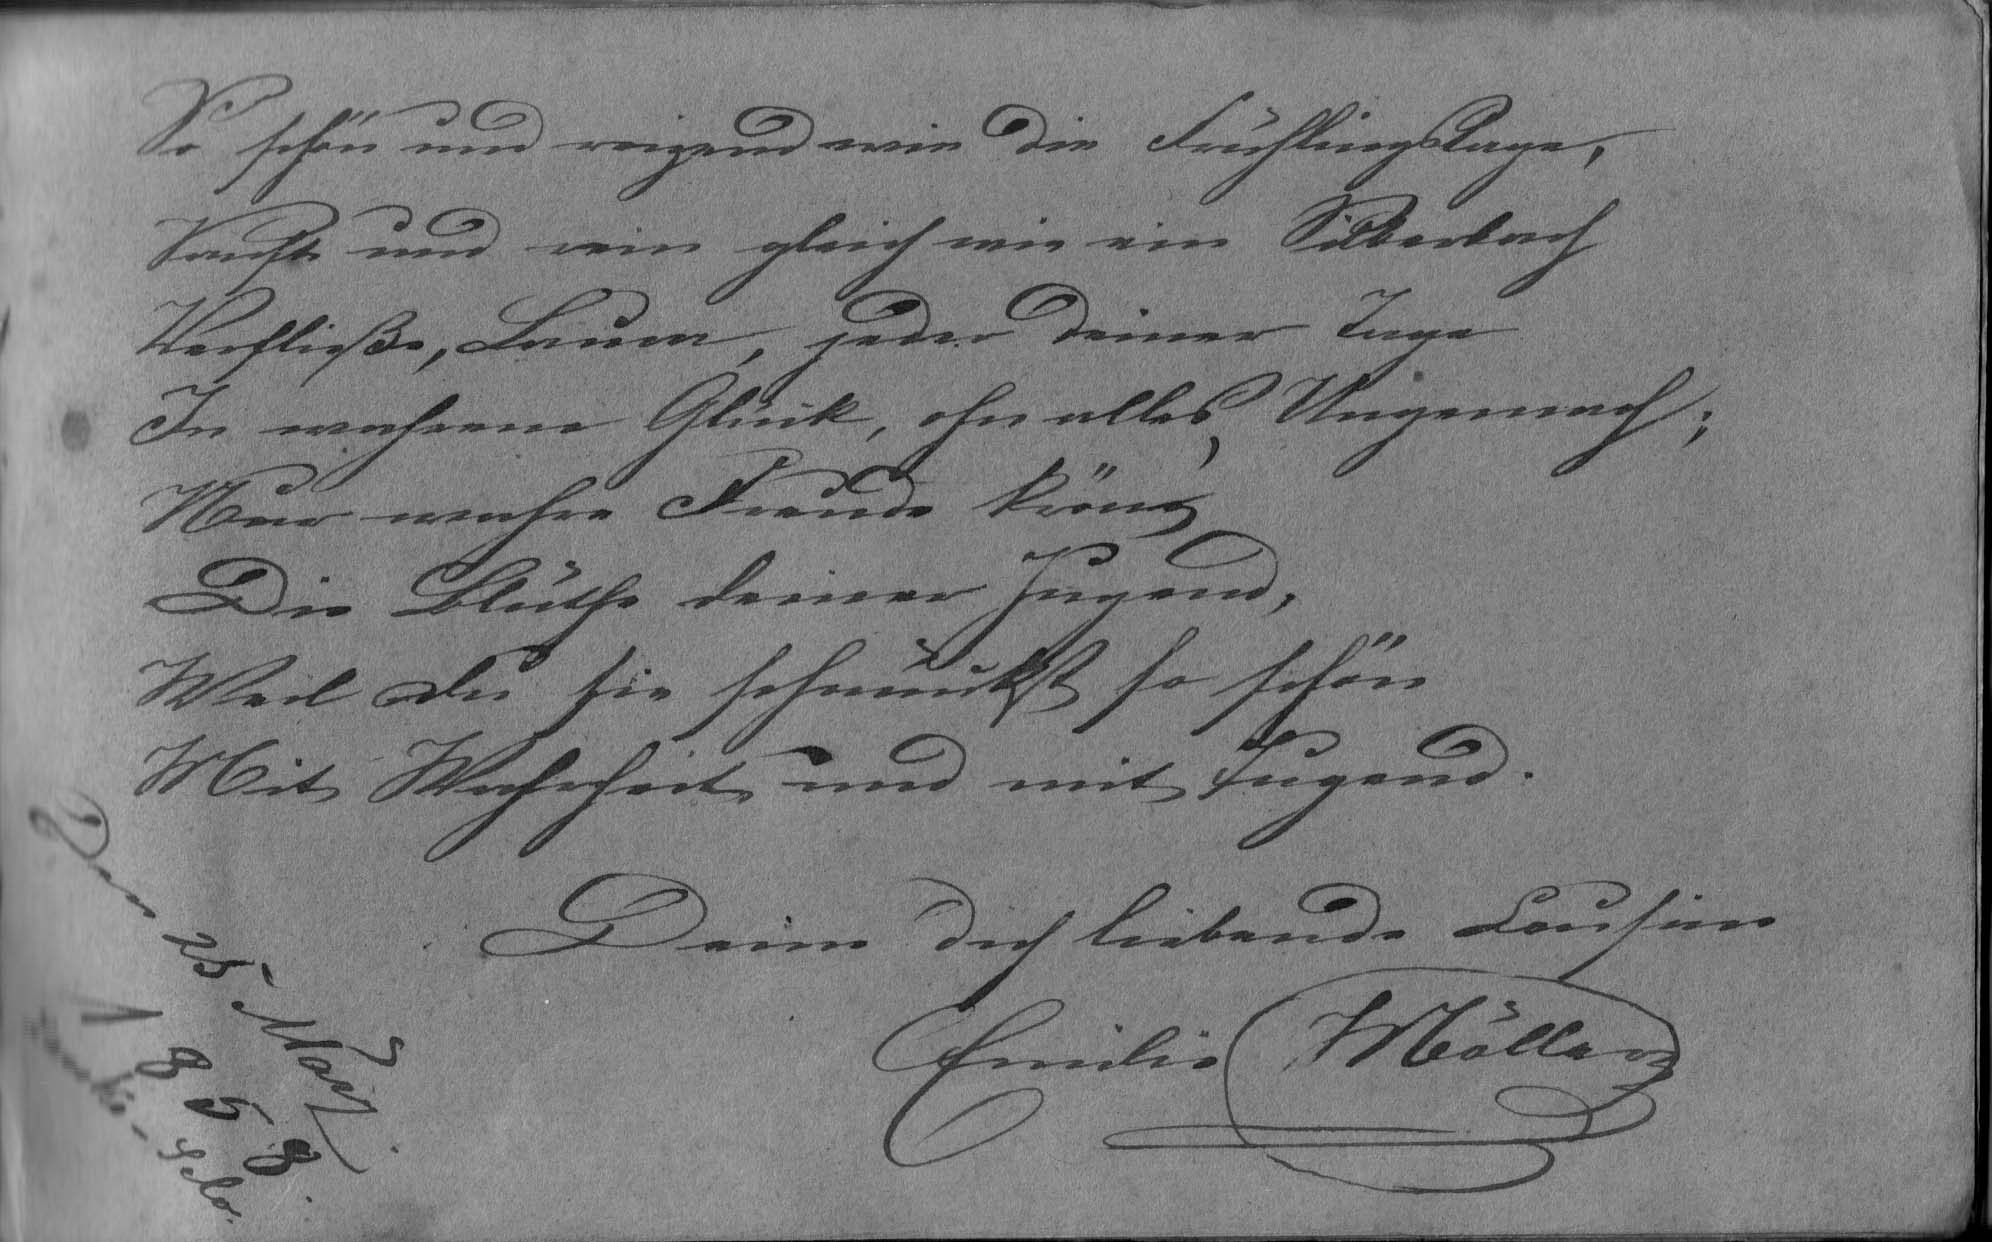 So schön und reizend wie die Frühlingstage,
Sanft und rein gleich wie ein Silberbach
Verfließe, Laura, jeder deiner Tage
In wahrem Glück, ohn alles Ungemach;
Nur wahre Freude kröne
Die Blüthe deiner Jugend,
Weil du sie schmückst so schön
Mit Wahrheit und mit Tugend.
Deine dich liebende Cousine
Emilie Möller
Den 25 März
1858.